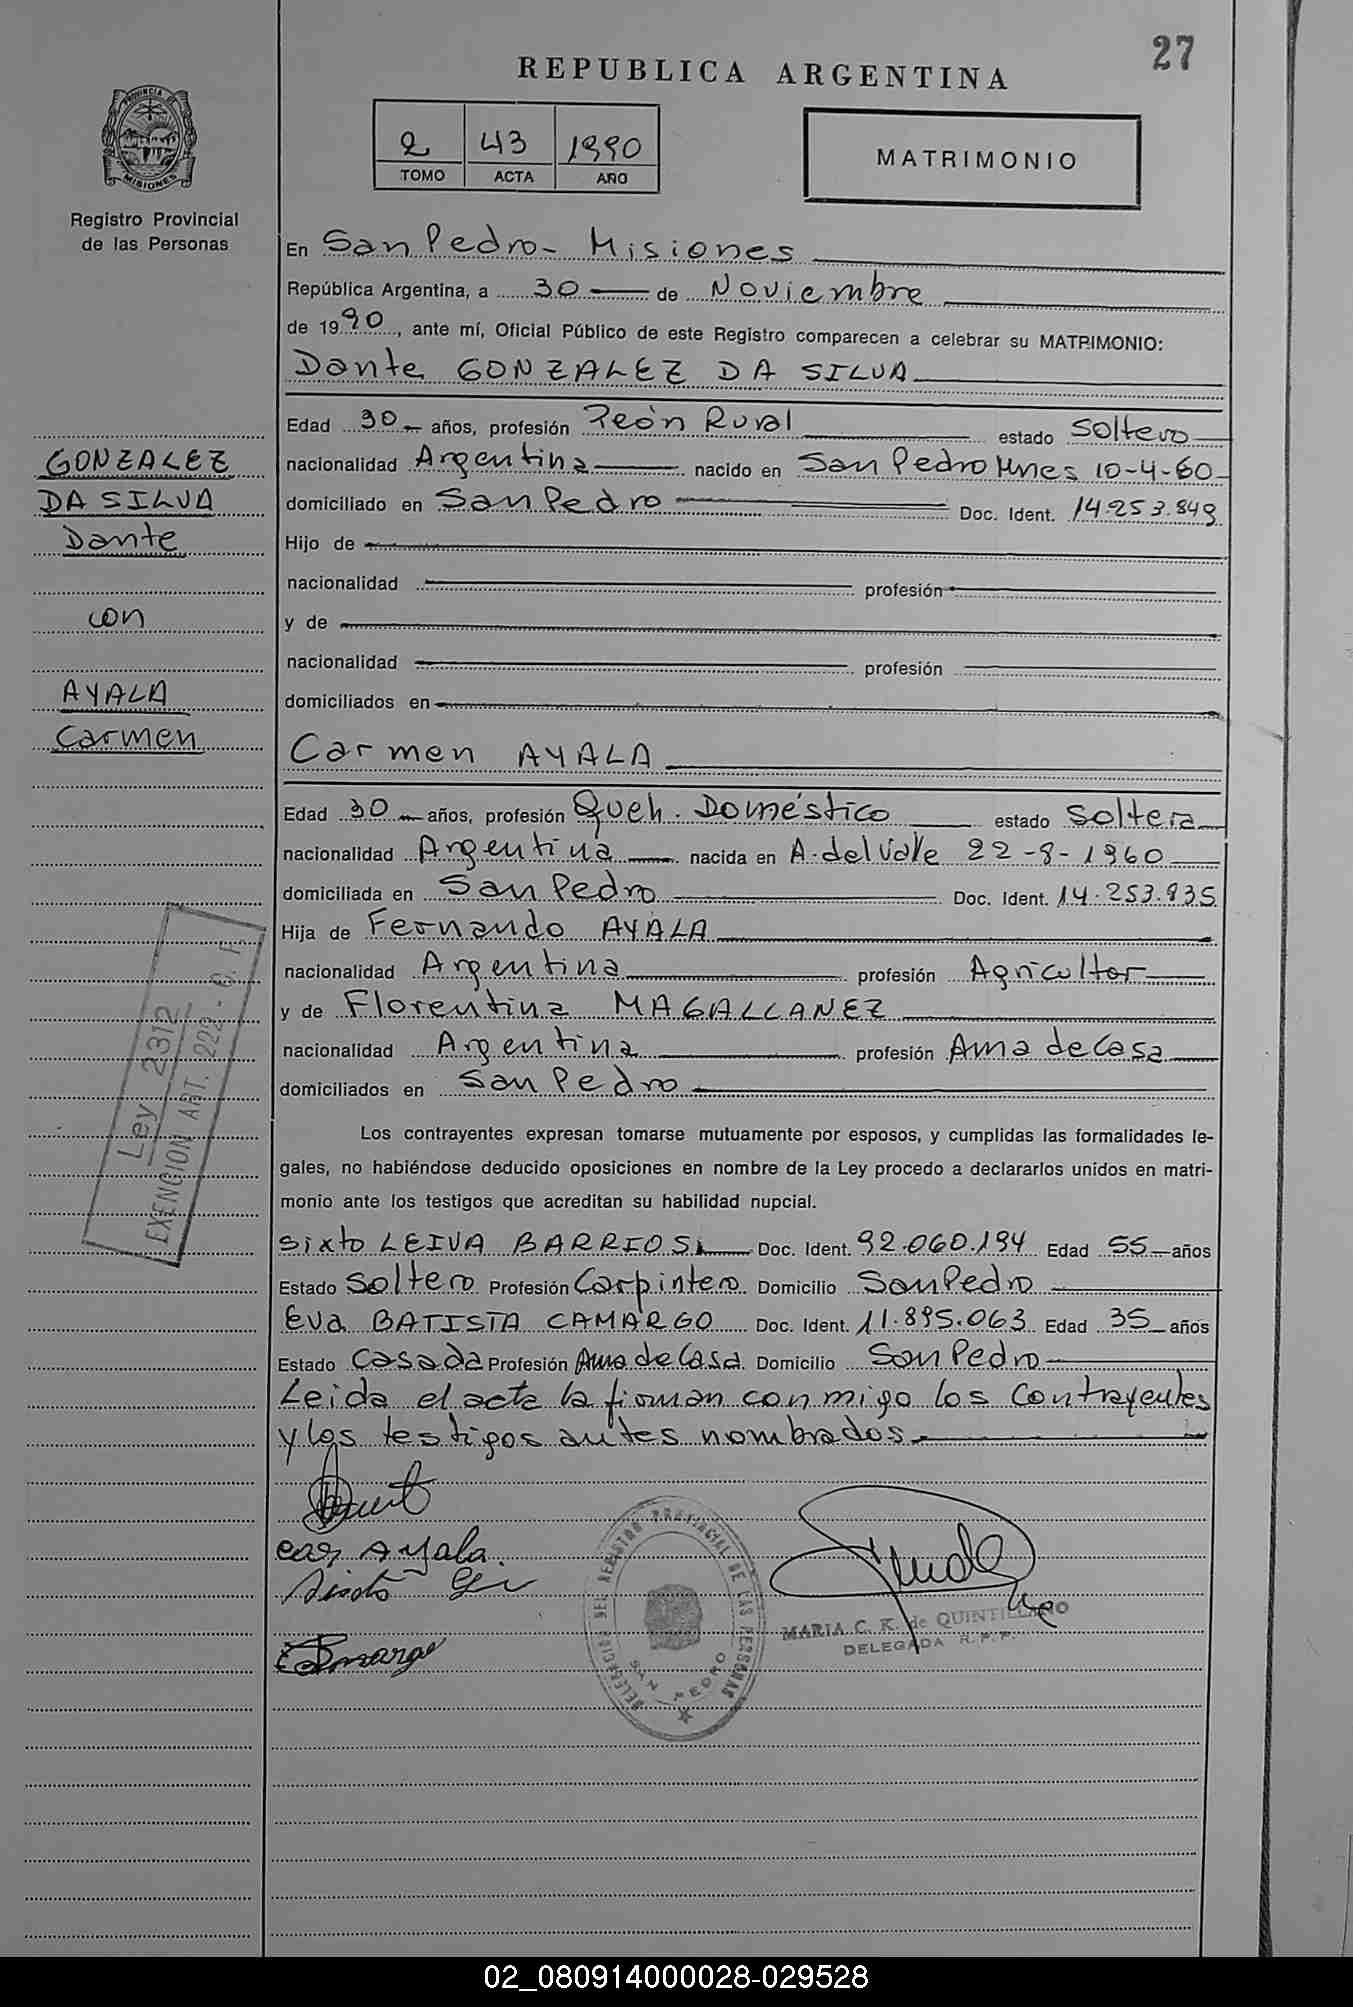 27
REPUBLICA ARGENTINA
2 43 1990
TOMO ACTA AÑO
MATRIMONIO
PROVINCIA DE
MISIONES
Registro Provincial
de las Personas
En San Pedro - Misiones
República Argentina, a 30 de Noviembre
de 1990, ante mí, Oficial Público de este Registro comparecen a celebrar su MATRIMONIO:
Dante GONZALEZ DA SILVA
Edad 30 años, profesión Peón Rural estado Soltero
nacionalidad Argentina nacido en San Pedro Mnes 10-4-60
domiciliado en San Pedro Doc. Ident. 14.253.849
Hijo de
nacionalidad profesión
y de
nacionalidad profesión
domiciliados en
GONZALEZ
DA SILVA
Dante
con
AYALA
Carmen
Carmen AYALA
Edad 30 años, profesión Queh. Doméstico estado Soltera
nacionalidad Argentina nacida en A. del Valle 22-8-1960
domiciliada en San Pedro Doc. Ident. 14.253.935
Hija de Fernando AYALA
nacionalidad Argentina profesión Agricultor
y de Florentina MAGALLANEZ
nacionalidad Argentina profesión Ama de Casa
domiciliados en San Pedro
Ley 2312
EXENCION ART. 222 -
Los contrayentes expresan tomarse mutuamente por esposos, y cumplidas las formalidades le-
gales, no habiéndose deducido oposiciones en nombre de la Ley procedo a declararlos unidos en matri-
monio ante los testigos que acreditan su habilidad nupcial.
Sixto LEIVA BARRIOS Doc. Ident. 92.060.194 Edad 55 años
Estado Soltero Profesión Carpintero Domicilio San Pedro
Eva BATISTA CAMARGO Doc. Ident. 11.895.063 Edad 35 años
Estado Casada Profesión Ama de Casa Domicilio San Pedro
Leida el acta la firman conmigo los Contrayentes
y los testigos antes nombrados
Ayala
DELEGACION DEL REGISTRO PROVINCIAL DE LAS PERSONAS
SAN PEDRO
MARIA C. K. de QUINTILLANO
DELEGADA R.P.P.
02_080914000028-029528